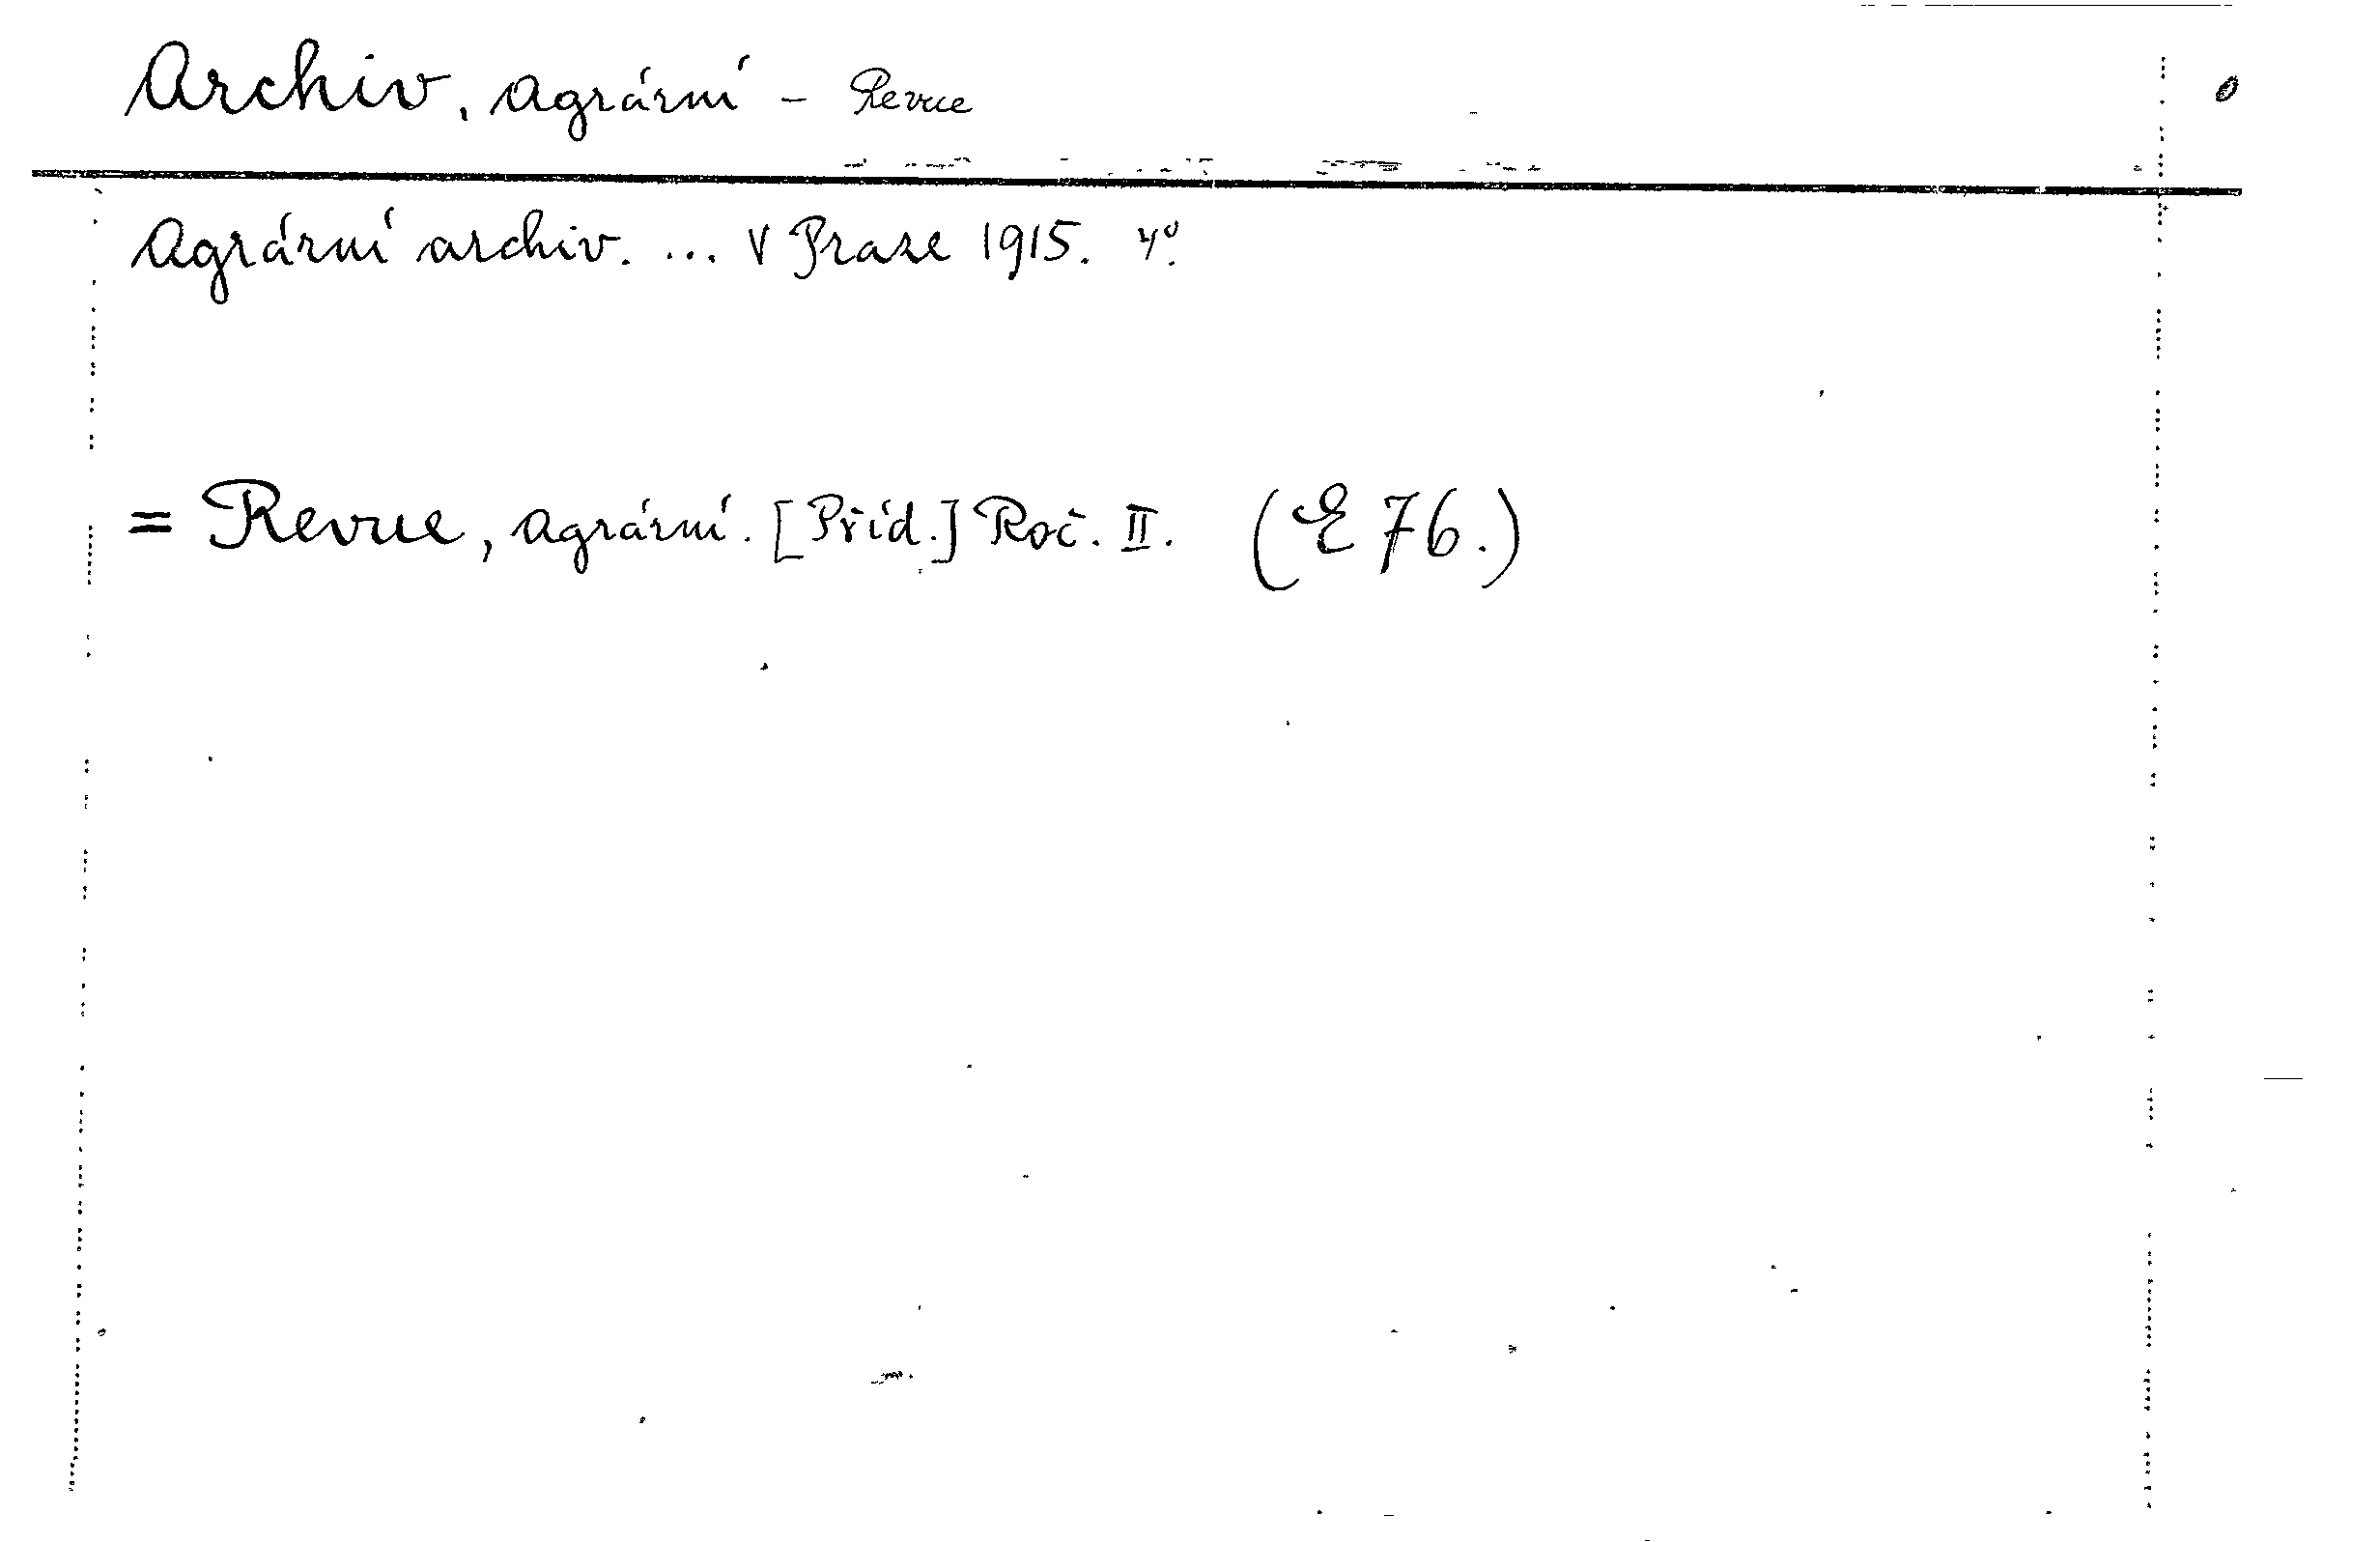 Archiv, agrární - Revue
Agrární archiv. ... V Praze 1915. 4°.
= Revue, agrární. [Příd.] Roč. II. (E 76.)